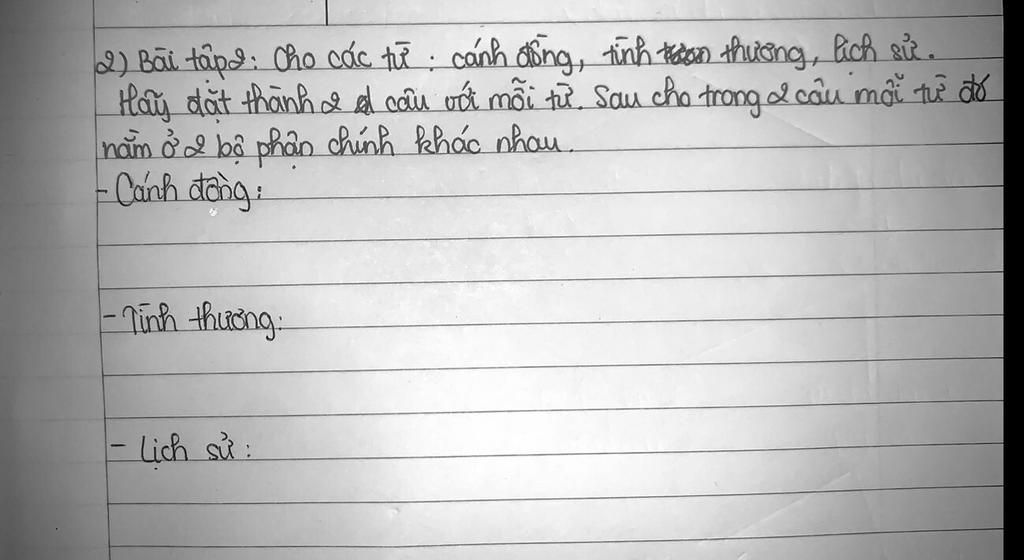 2) Bài tập 2: Cho các từ : cánh đồng, tình thương, lịch sử.
Hãy đặt thành 2 câu với mỗi từ. Sau cho trong 2 câu mỗi từ đó
nằm ở 2 bộ phận chính khác nhau.
- Cánh đồng:
- Tình thương:
- Lịch sử: